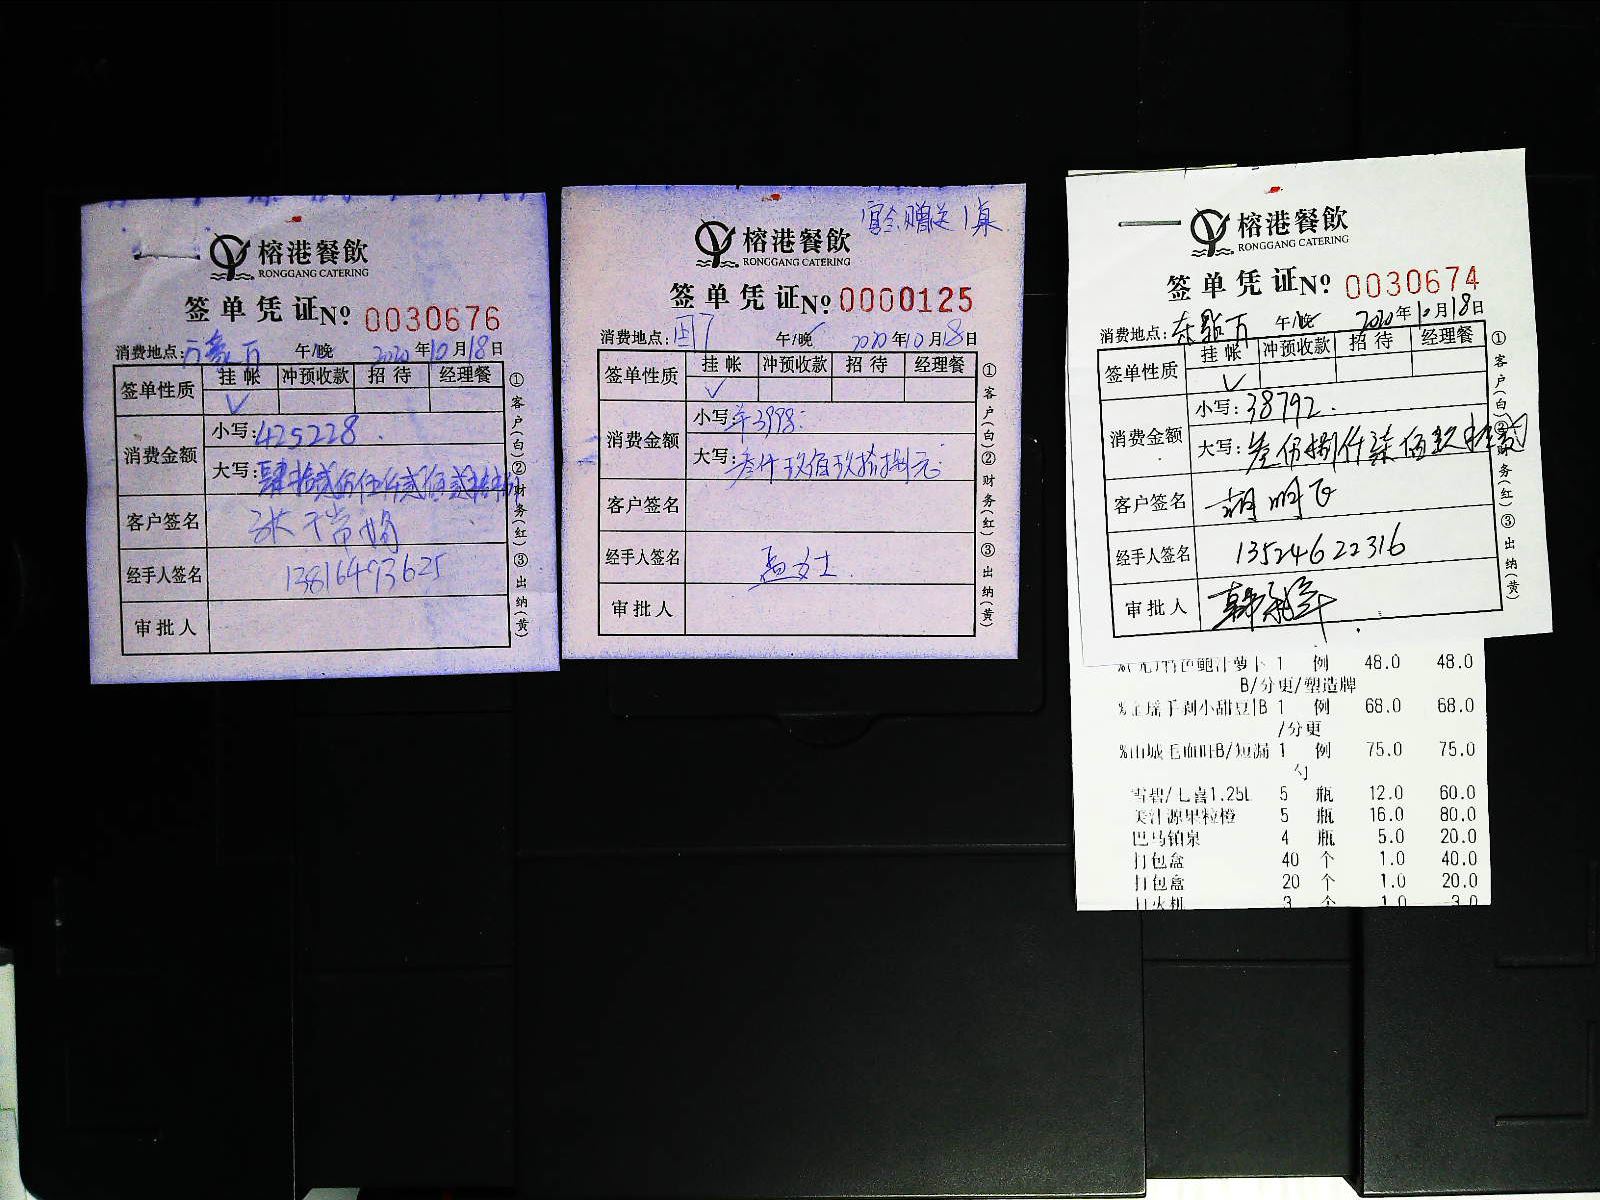 榕港餐飲
RONGGANG CATERING
签单凭证No 0030676
消费地点: 午/晚 2020年10月18日
签单性质 挂帐 冲预收款 招待 经理餐
消费金额 小写:425228.
大写:肆拾贰万伍仟贰佰贰拾捌
客户签名
经手人签名 13816493625
审批人
①客户(白)②财务(红)③出纳(黄)
宴会赠送1桌
榕港餐飲
RONGGANG CATERING
签单凭证No 0000125
消费地点: 午/晚 2020年10月18日
签单性质 挂帐 冲预收款 招待 经理餐
消费金额 小写:羊3998.
大写:叁仟玖佰玖拾捌元
客户签名
经手人签名 孟女士
审批人
①客户(白)②财务(红)③出纳(黄)
榕港餐飲
RONGGANG CATERING
签单凭证No 0030674
消费地点: 午/晚 2020年10月18日
签单性质 挂帐 冲预收款 招待 经理餐
消费金额 小写:38792.
大写:叁万捌仟柒佰玖拾贰
客户签名 胡明飞
经手人签名 13524622316
审批人
①客户(白)②财务(红)③出纳(黄)
特色鲍汁萝卜 1 例 48.0 48.0
B/分更/塑造牌
小甜豆B 1 例 68.0 68.0
/分更
%山城毛血旺B/短漏 1 例 75.0 75.0
勺
雪碧/七喜1.25L 5 瓶 12.0 60.0
美汁源果粒橙 5 瓶 16.0 80.0
巴马铂泉 4 瓶 5.0 20.0
打包盒 40 个 1.0 40.0
打包盒 20 个 1.0 20.0
打火机 3 个 1.0 3.0